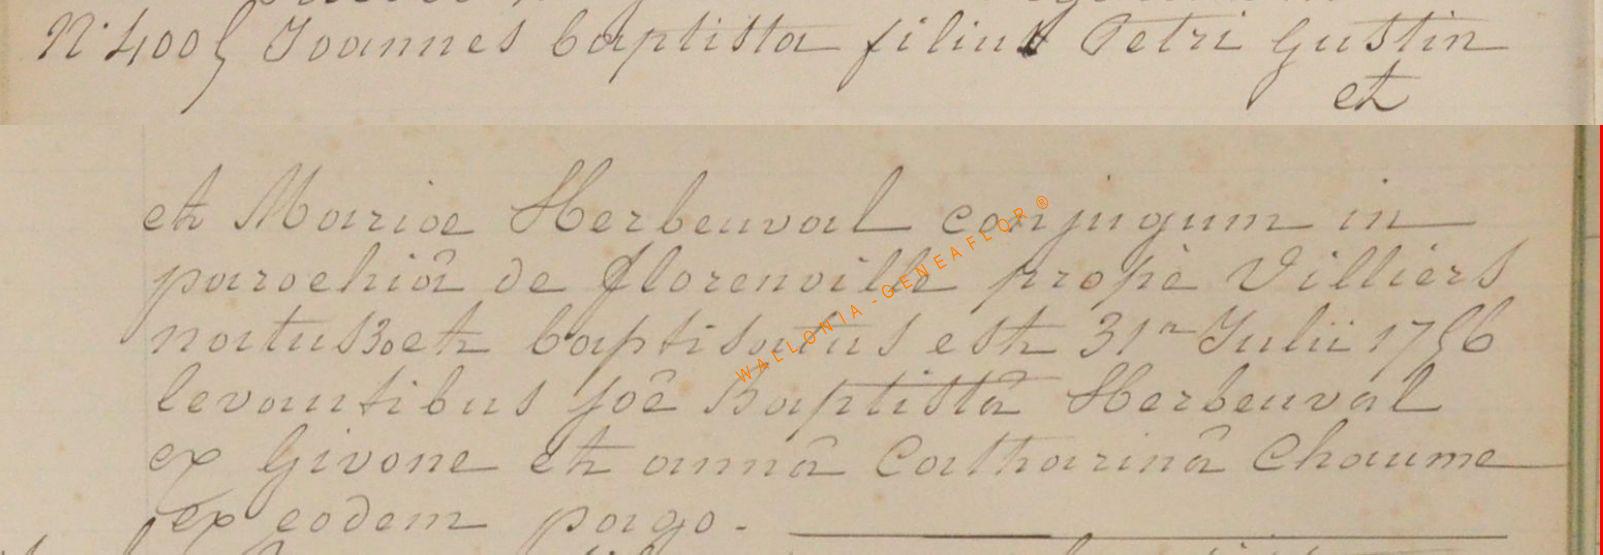 N° 400 Joannes baptista filius Petri Gustin
et
et Mariae Herbeuval conjugum in
parochiâ de florenville propè Villiers
natus 30 et baptisatus est 31a Julii 1756
levantibus joê Baptistâ Herbeuval
ex Givone et annâ Catharinâ Chaume
ex eodem pago.
WALLONIA - GENEAFLOR ®